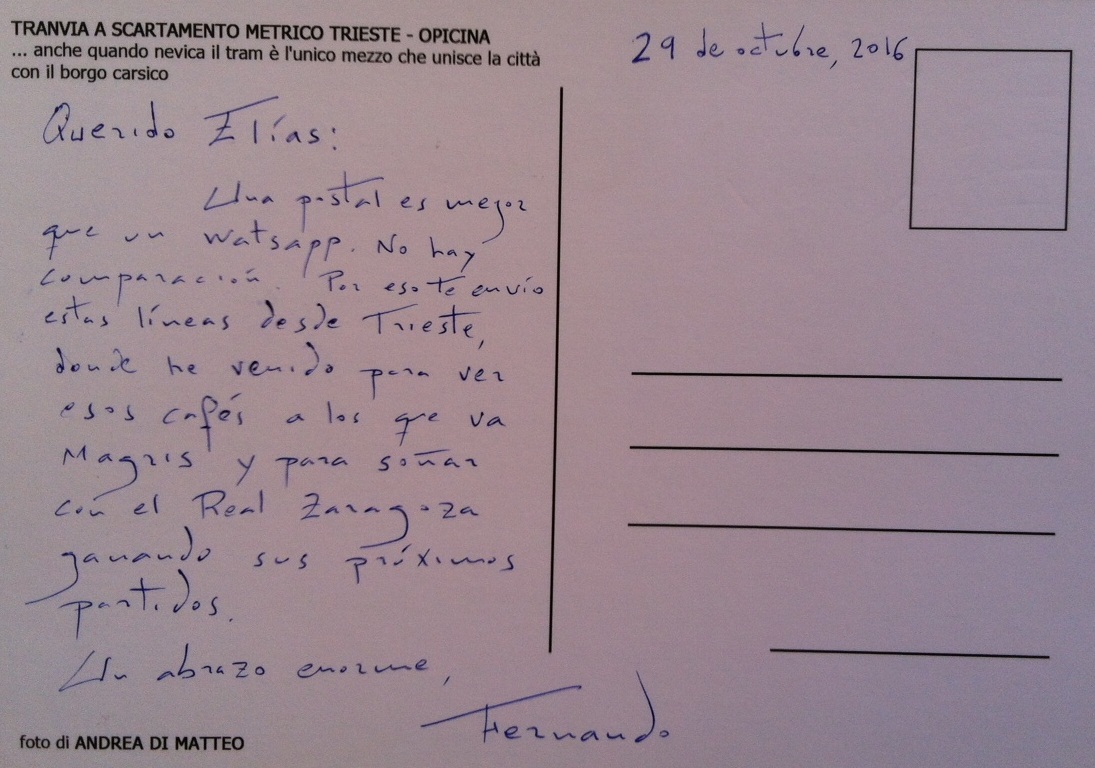 TRANVIA A SCARTAMENTO METRICO TRIESTE - OPICINA
... anche quando nevica il tram è l'unico mezzo che unisce la città
con il borgo carsico
29 de octubre, 2016
Querido Elías:
Una postal es mejor
que un watsapp. No hay
comparación. Por eso te envío
estas líneas desde Trieste,
donde he venido para ver
esos cafés a los que va
Magris y para soñar
con el Real Zaragoza
ganando sus próximos
partidos.
Un abrazo enorme,
Fernando
foto di ANDREA DI MATTEO